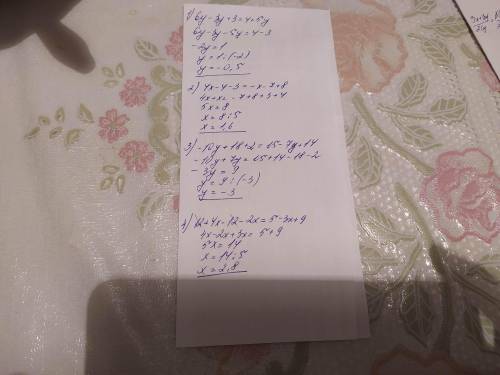 1) 6y-3y+3=4+5y
6y-3y-5y=4-3
-2y=1
y=1:(-2)
y=-0,5
2) 4x-4-3=-x-7+8
4x+x=-7+8+3+4
5x=8
x=8:5
x=1,6
3) -10y+18+2=15-7y+14
-10y+7y=15+14-18-2
-3y=9
y=9:(-3)
y=-3
4) 12+4x-12-2x=5-3x+9
4x-2x+3x=5+9
5x=14
x=14:5
x=2,8